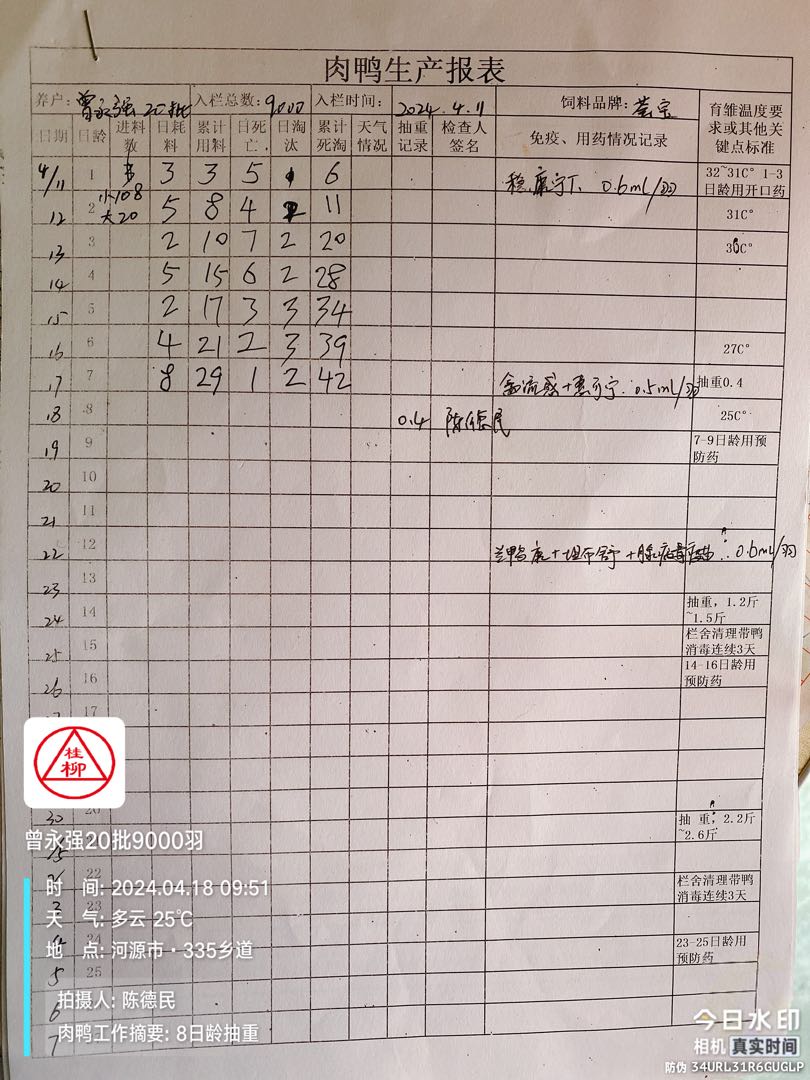 肉鸭生产报表
养户: 曾永强 20批 入栏总数: 9000 入栏时间: 2024.4.11 饲料品牌: 育雏温度要求或其他关键点标准
日期 日龄 进料数 日耗料 累计用料 日死亡 日淘汰 累计死淘 天气情况 抽重记录 检查人签名 免疫、用药情况记录
4/11 1 3 3 5 1 6 0.6ml/羽 32~31C° 1-3日龄用开口药
12 2 小108 大20 5 8 4 2 11 31C°
13 3 2 10 7 2 20 30C°
14 4 5 15 6 2 28
15 5 2 17 3 3 34
16 6 4 21 2 3 39 27C°
17 7 8 29 1 2 42 0.5ml/羽 抽重0.4
18 8 0.4 陈德民 25C°
19 9 7-9日龄用预防药
20 10
21 11
22 12 0.6ml/羽
23 13
24 14 抽重, 1.2斤~1.5斤
25 15 栏舍清理带鸭消毒连续3天
26 16 14-16日龄用预防药
17
30 20 抽 重, 2.2斤~2.6斤
22 栏舍清理带鸭消毒连续3天
3
24 23-25日龄用预防药
5 25
6
7
桂柳
曾永强20批9000羽
时 间: 2024.04.18 09:51
天 气: 多云 25℃
地 点: 河源市·335乡道
拍摄人: 陈德民
肉鸭工作摘要: 8日龄抽重
今日水印
相机 真实时间
防伪 34URL31R6GUGLP